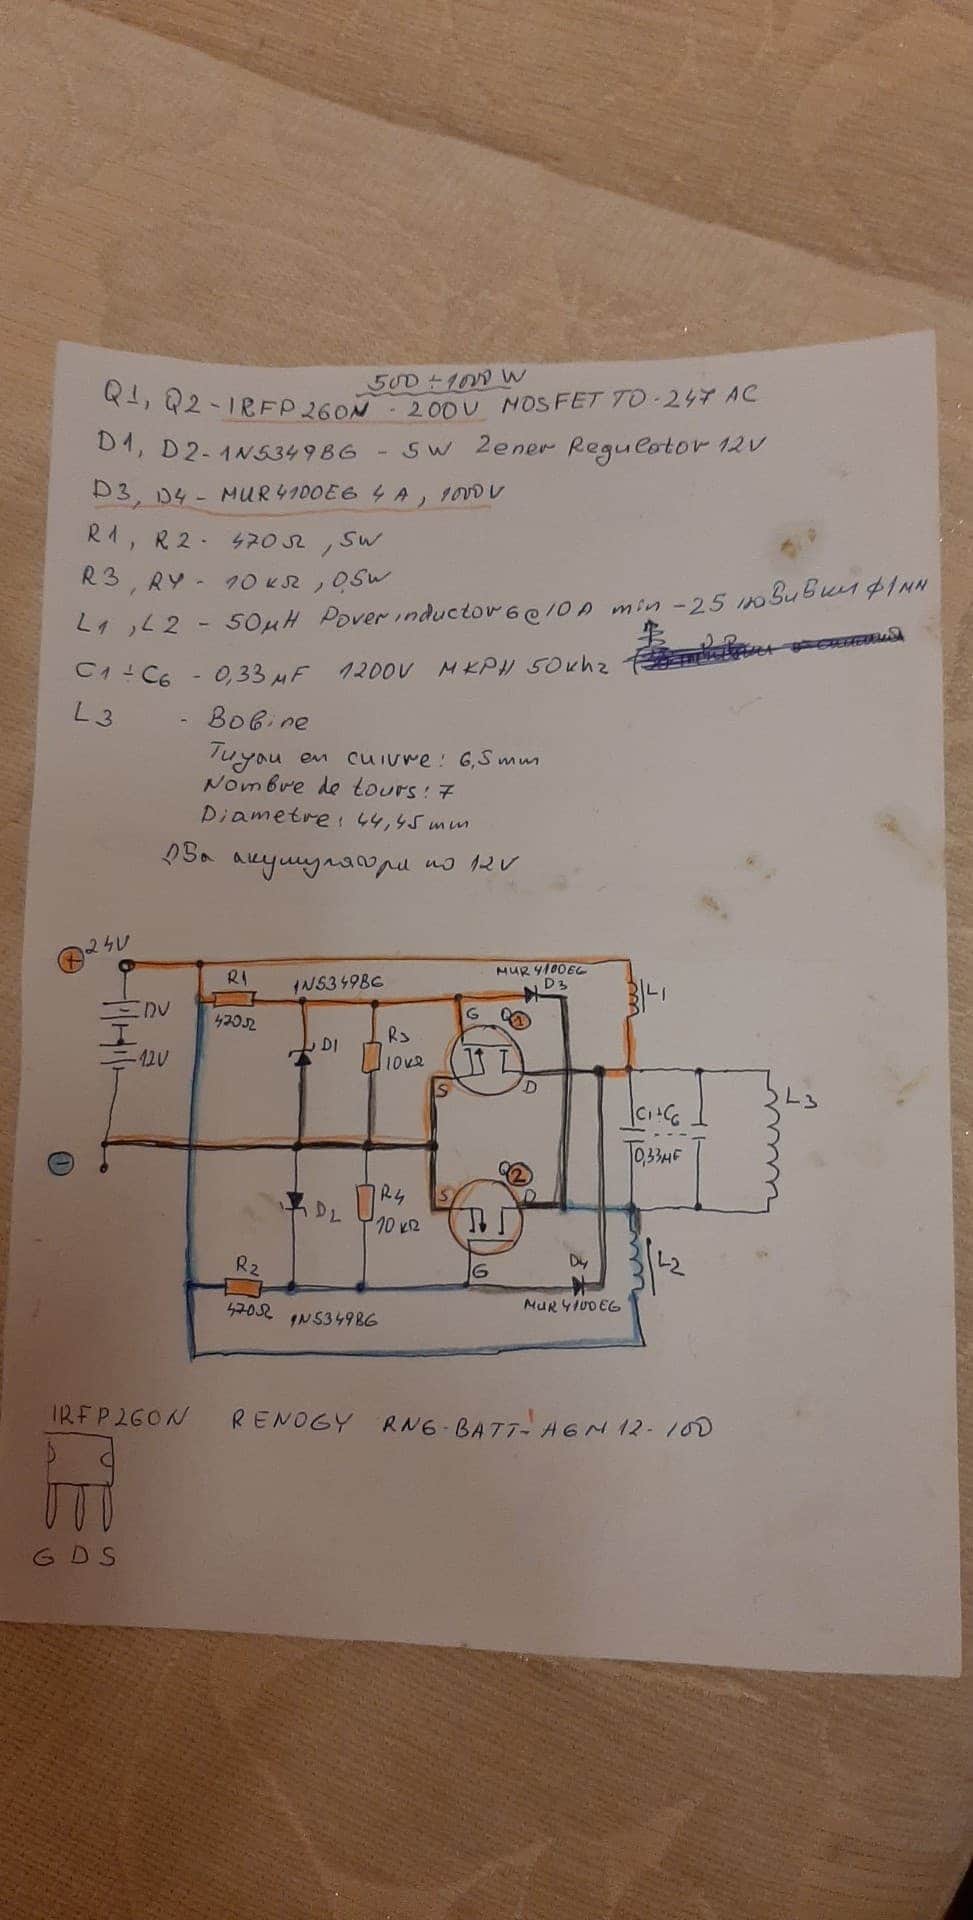 500 ÷ 1000 W
Q1, Q2 - IRFP260N - 200V MOSFET TO-247 AC
D1, D2 - 1N5349BG - 5W Zener Regulator 12V
D3, D4 - MUR4100EG 4A, 1000V
R1, R2 - 470Ω, 5W
R3, R4 - 10 кΩ, 0,5W
L1, L2 - 50μH Power inductor 6@10A min - 25 новивки ф1мм
C1÷C6 - 0,33 μF 1200V MKPH 50khz
L3 - Bobine
Tuyau en cuivre: 6,5mm
Nombre de tours: 7
Diametre: 44,45 mm
Два акумулятори по 12V
+ 24V
R1
470Ω
1N5349BG
MUR4100EG
D3
L1
12V
12V
D1
R3
10кΩ
G
Q1
S
D
C1÷C6
0,33μF
L3
-
D2
R4
10 кΩ
Q2
S
D
G
R2
470Ω
1N5349BG
D4
MUR4100EG
L2
IRFP260N RENOGY RNG-BATT-AGM12-100
G D S